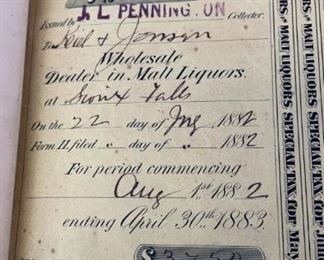 J. L. PENNINGTON
Issued by Collector.
To Reid & Jensen
Wholesale
Dealer in Malt Liquors.
at Sioux Falls
On the 22 day of 1882
Form 11, filed " day of " 1882
For period commencing
Aug 1st 1882
ending April 30th 1883.
MALT LIQUORS SPECIAL TAX for May
MALT LIQUORS SPECIAL TAX for June